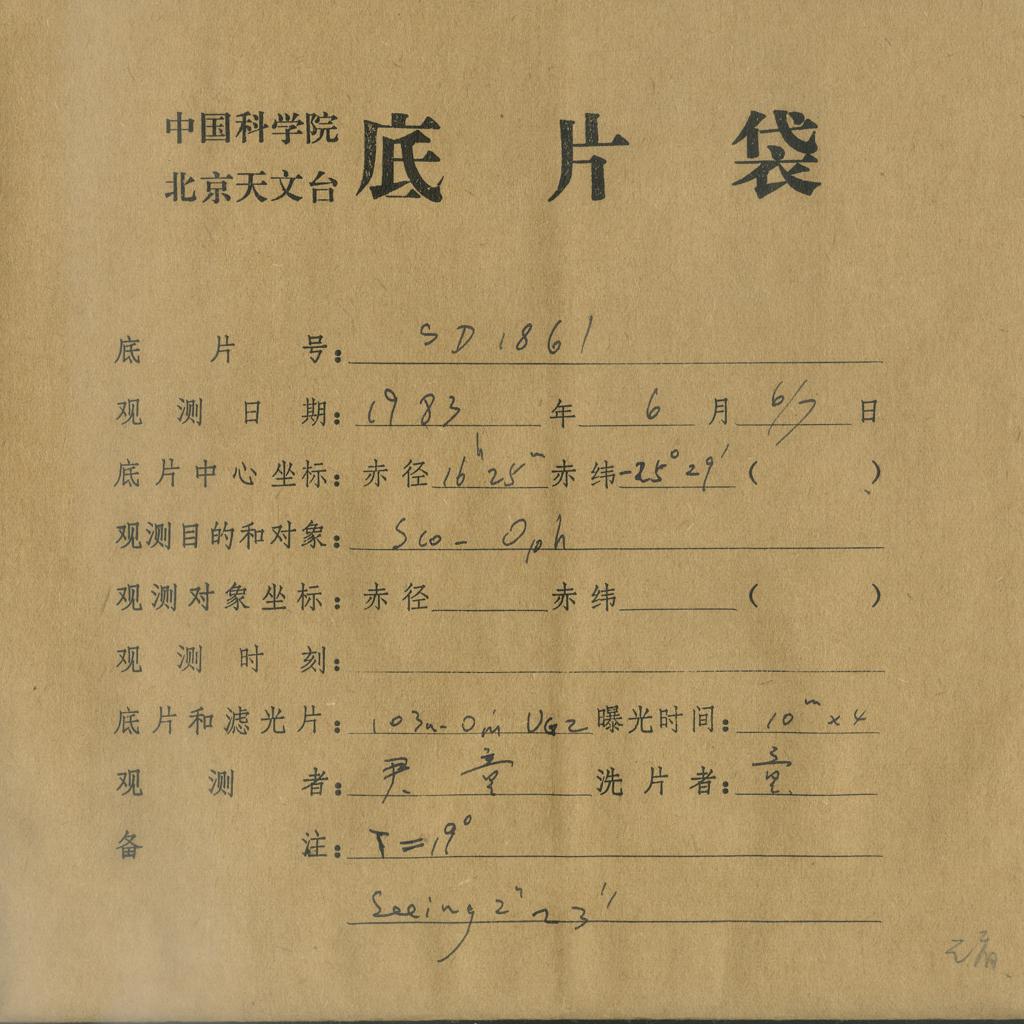 中国科学院
北京天文台 底片袋
底片号: SD 1861
观测日期: 1983 年 6 月 6/7 日
底片中心坐标: 赤径 16ʰ25ᵐ 赤纬 -25°29′ ( )
观测目的和对象: Sco - Oph
观测对象坐标: 赤径 赤纬 ( )
观测时刻:
底片和滤光片: 103a-O UG2 曝光时间: 10ᵐ×4
观测者: 尹 童 洗片者: 童
备注: T=19°
Seeing 2"~3"